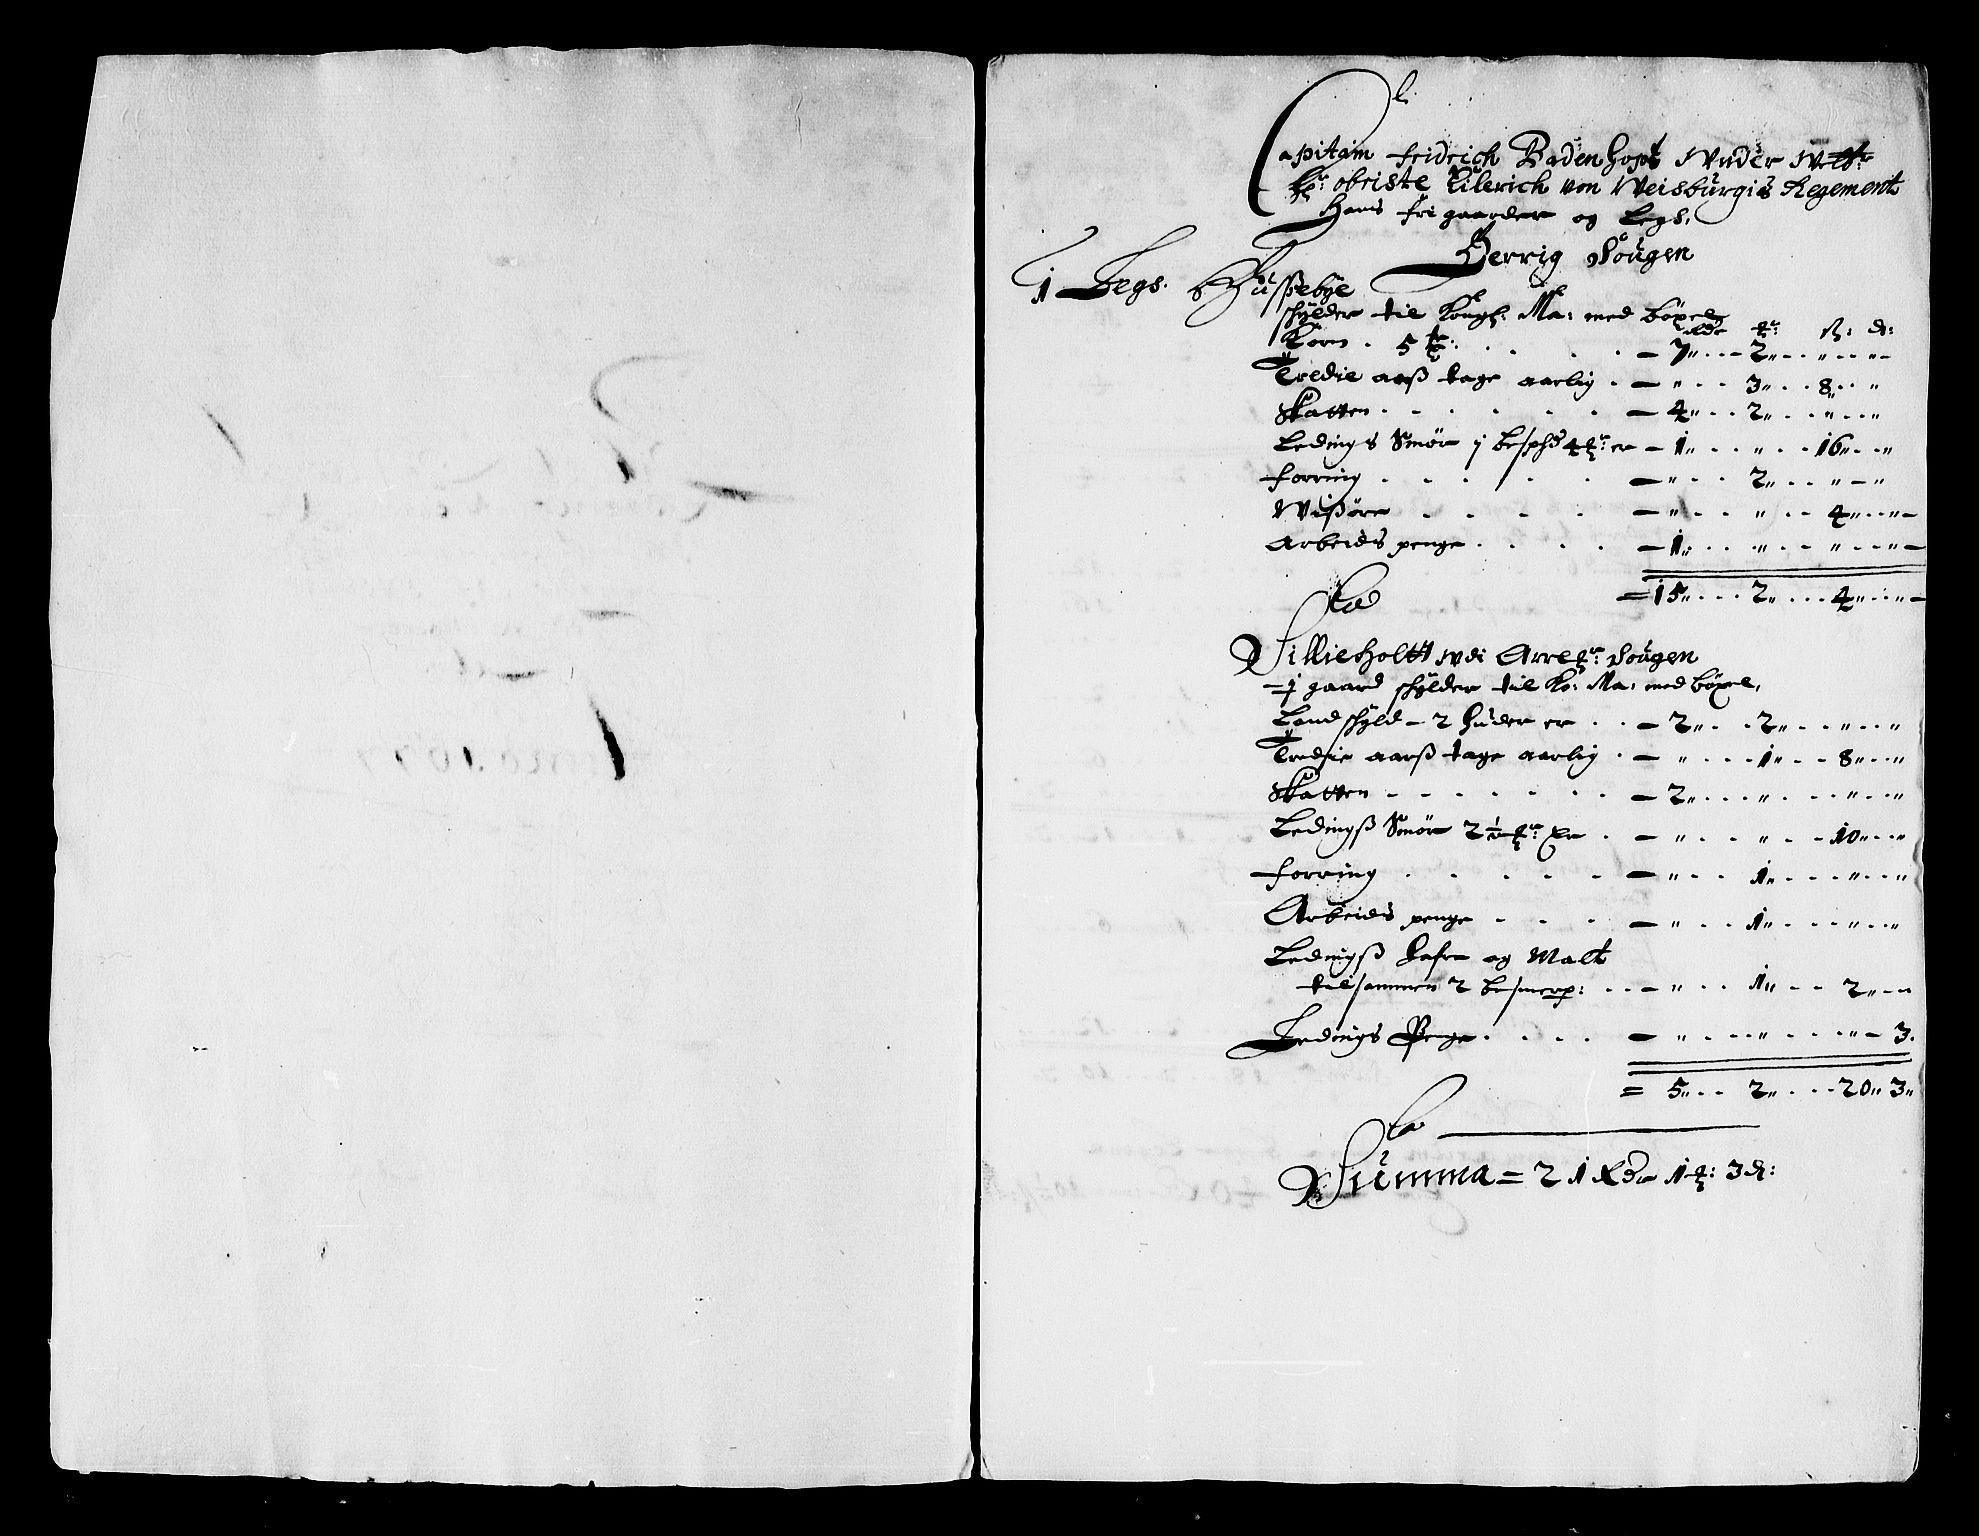 Capitain fridrich Badenhopt Under Welb:r
Hr: obriste Tilerich von Weisburgis Regement
Hans fri gaarder og Legs.
Berrig Sougen
1 Legs. Hüssebye
schylder til Kongl: Ma: med böxel
Rdr qr: ß: d:
Korn . 5 . . . . — 7 „ . . . 2 „ . . „ . . . „
Tredie aarß tage aarlig . — „ . . 3 „ . . 8 „ . . „
Skatten . . . . . . — 4 „ . . . 2 „ . . „ . . . „
Ledings Smör j besphd 4 qr: er — 1 „ . . . „ . . . 16 „ . . „
forring . . . . . — „ . . 2 „ . . „ — „
Wißöre . . . . — „ . . „ . . 4 „ . . „
Arbeids penge . . . . — 1 „ . . „ . . „ . . . „
= 15 „ . . . 2 „ . . . 4 „ . . . „
Lillieholtt wdi Arre Sougen
— j gaard schylder til Ko: Ma: med böxel,
Landschyld — 2 huder er . . — 2 „ . . 2 „ . . . „ . . . „
Tredie aarß tage aarlig . — „ . . . 1 „ . . 8 „ . . „
Skatten . . . . . . — 2 „ . . . „ . . . „ . . . „
Ledingß Smör 2 ½ qr: er . — „ . . . „ . . 10 „ . . „
forring . . . . . — „ . . 1 „ . . . „ . . . „
Arbeids penge . . . — „ . . 1 „ . . . „ . . „
Ledingß hafre og Malt
tilsammen 2 besmerp: . . — „ . . 1 „ . . 2 „ . . „
Ledings Penge . . . . — „ . . . „ . . . „ — 3.
= 5 „ . . 2 „ . . . 20 „ 3 „
Summa = 21 Rdr 1 qr: 3 d: